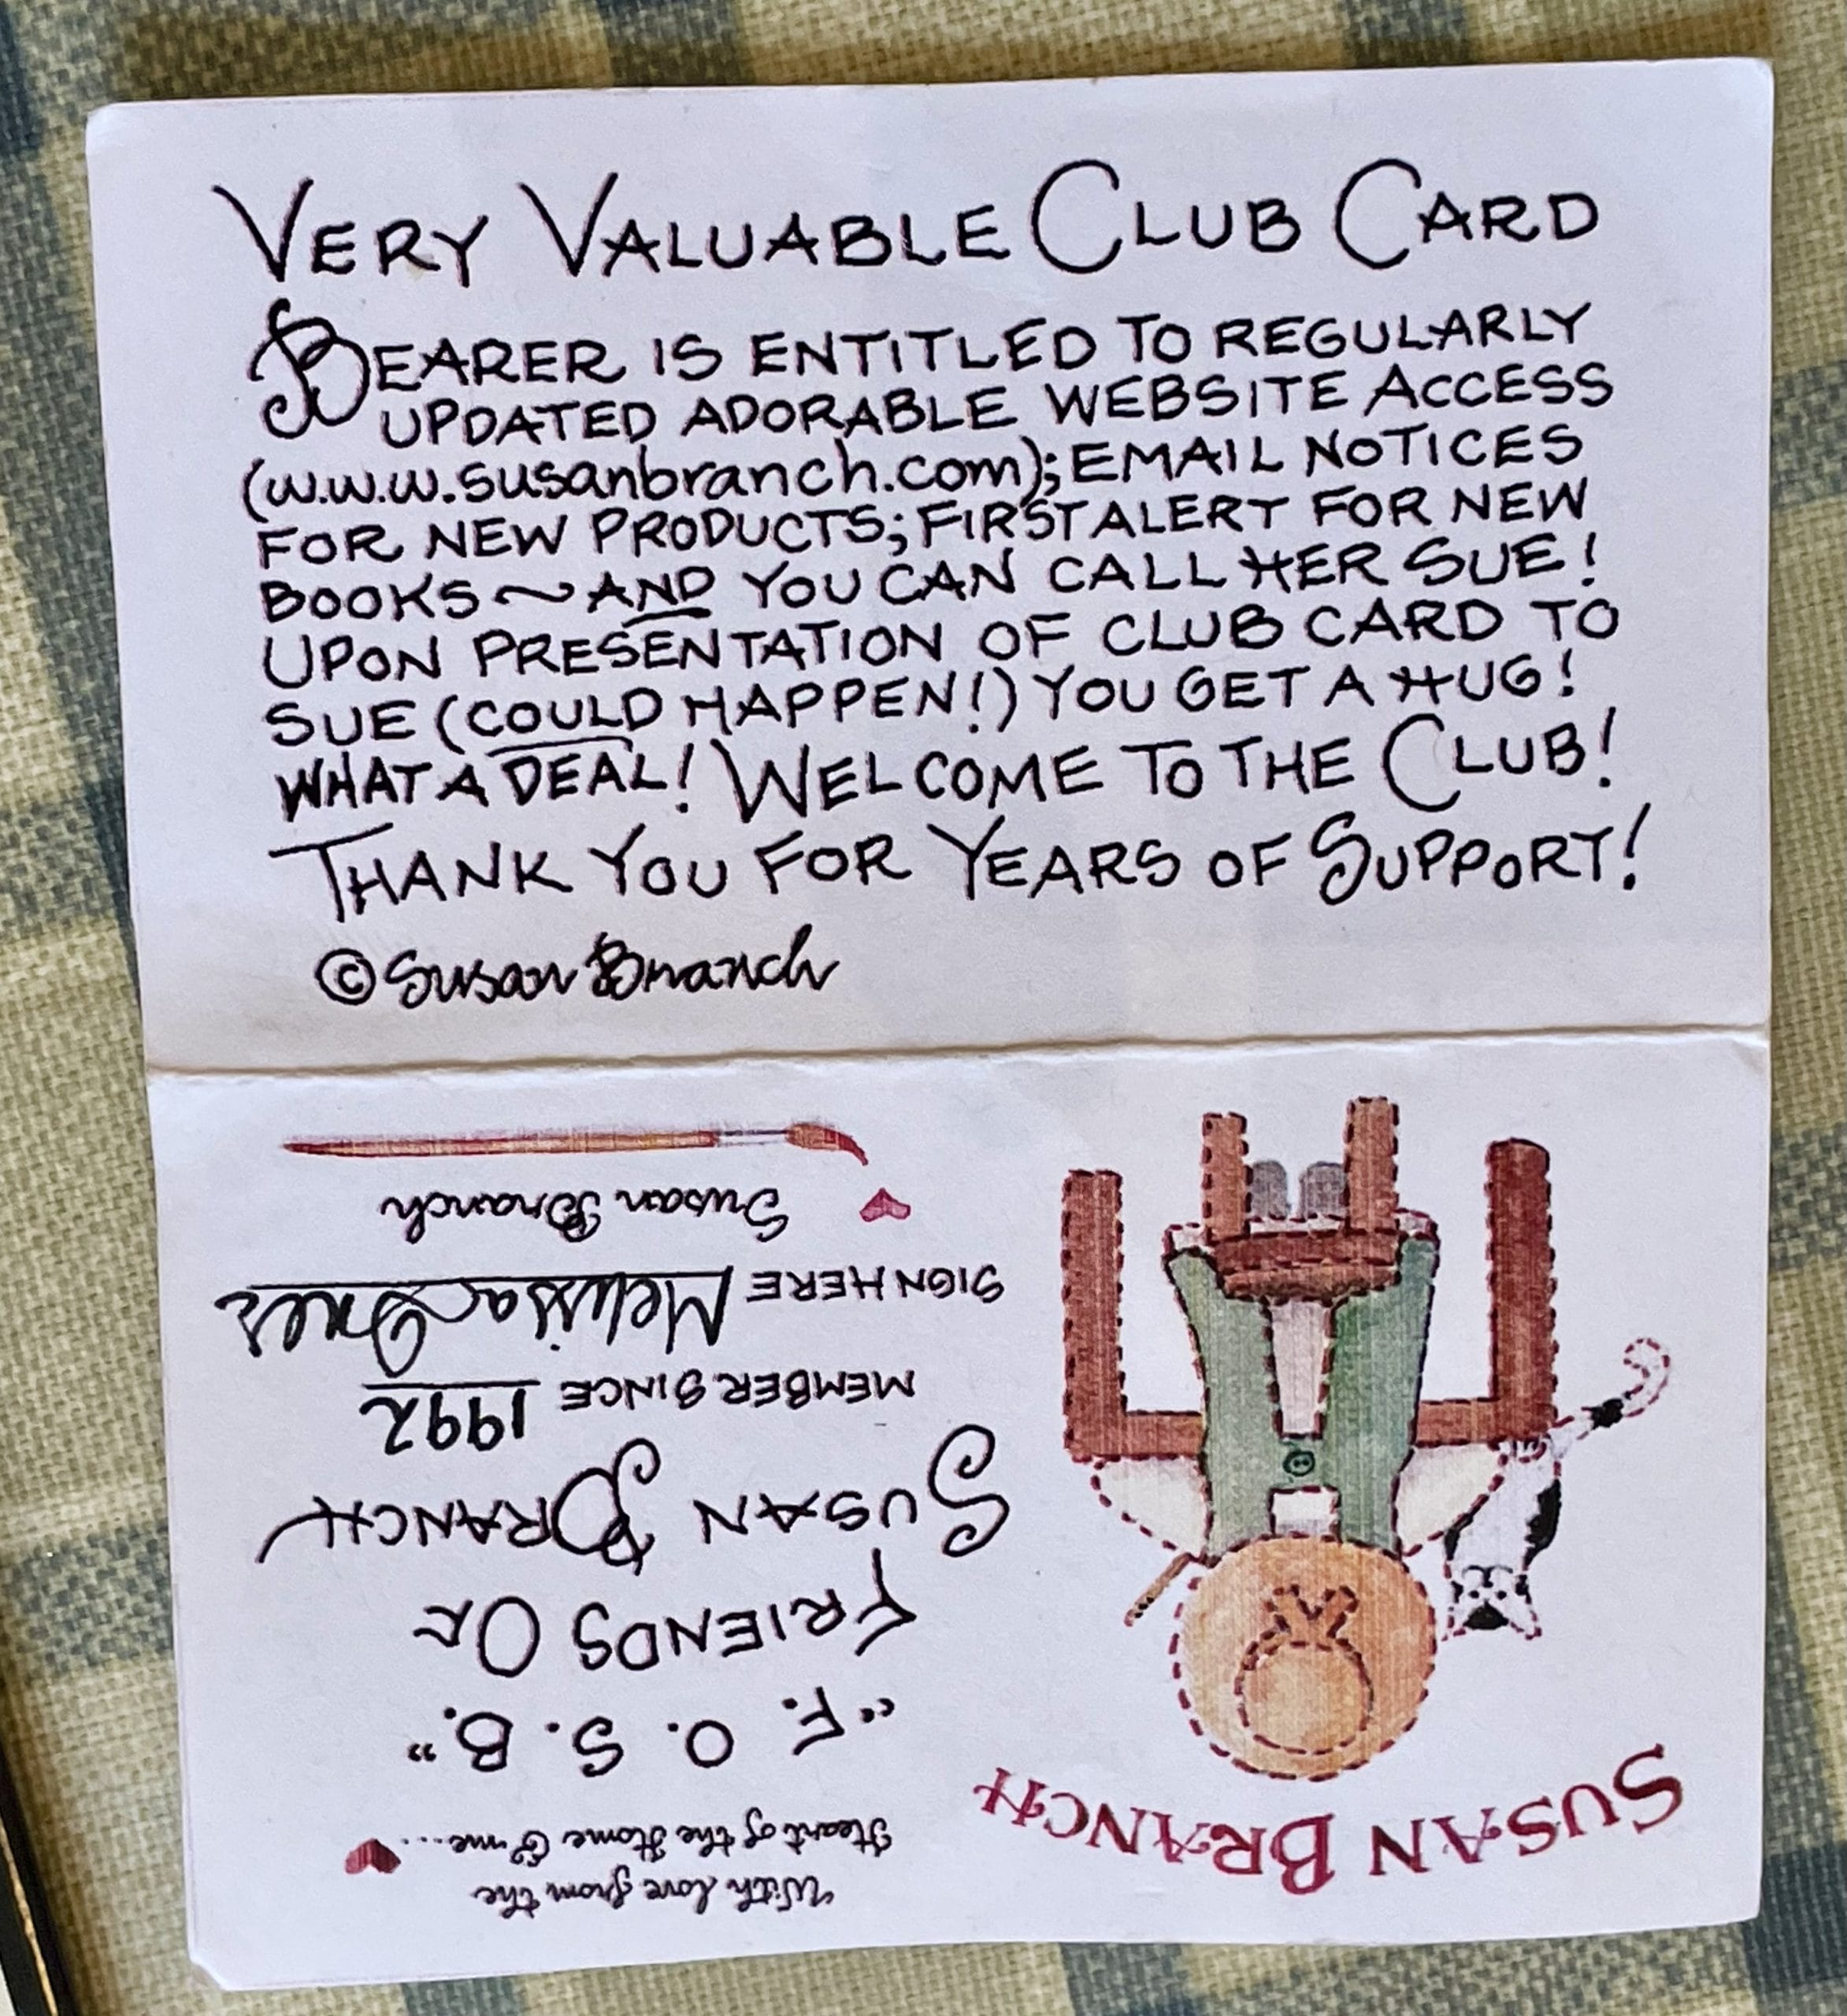 VERY VALUABLE CLUB CARD
BEARER IS ENTITLED TO REGULARLY
UPDATED ADORABLE WEBSITE ACCESS
(w.w.w.susanbranch.com); EMAIL NOTICES
FOR NEW PRODUCTS; FIRST ALERT FOR NEW
BOOKS ~ AND YOU CAN CALL HER SUE!
UPON PRESENTATION OF CLUB CARD TO
SUE (COULD HAPPEN!) YOU GET A HUG!
WHAT A DEAL! WELCOME TO THE CLUB!
THANK YOU FOR YEARS OF SUPPORT!
© Susan Branch
SUSAN BRANCH
With love from the
Heart of the Home & me...
"F. O. S. B."
FRIENDS OF
SUSAN BRANCH
MEMBER SINCE 1992
SIGN HERE Melissa
Susan Branch